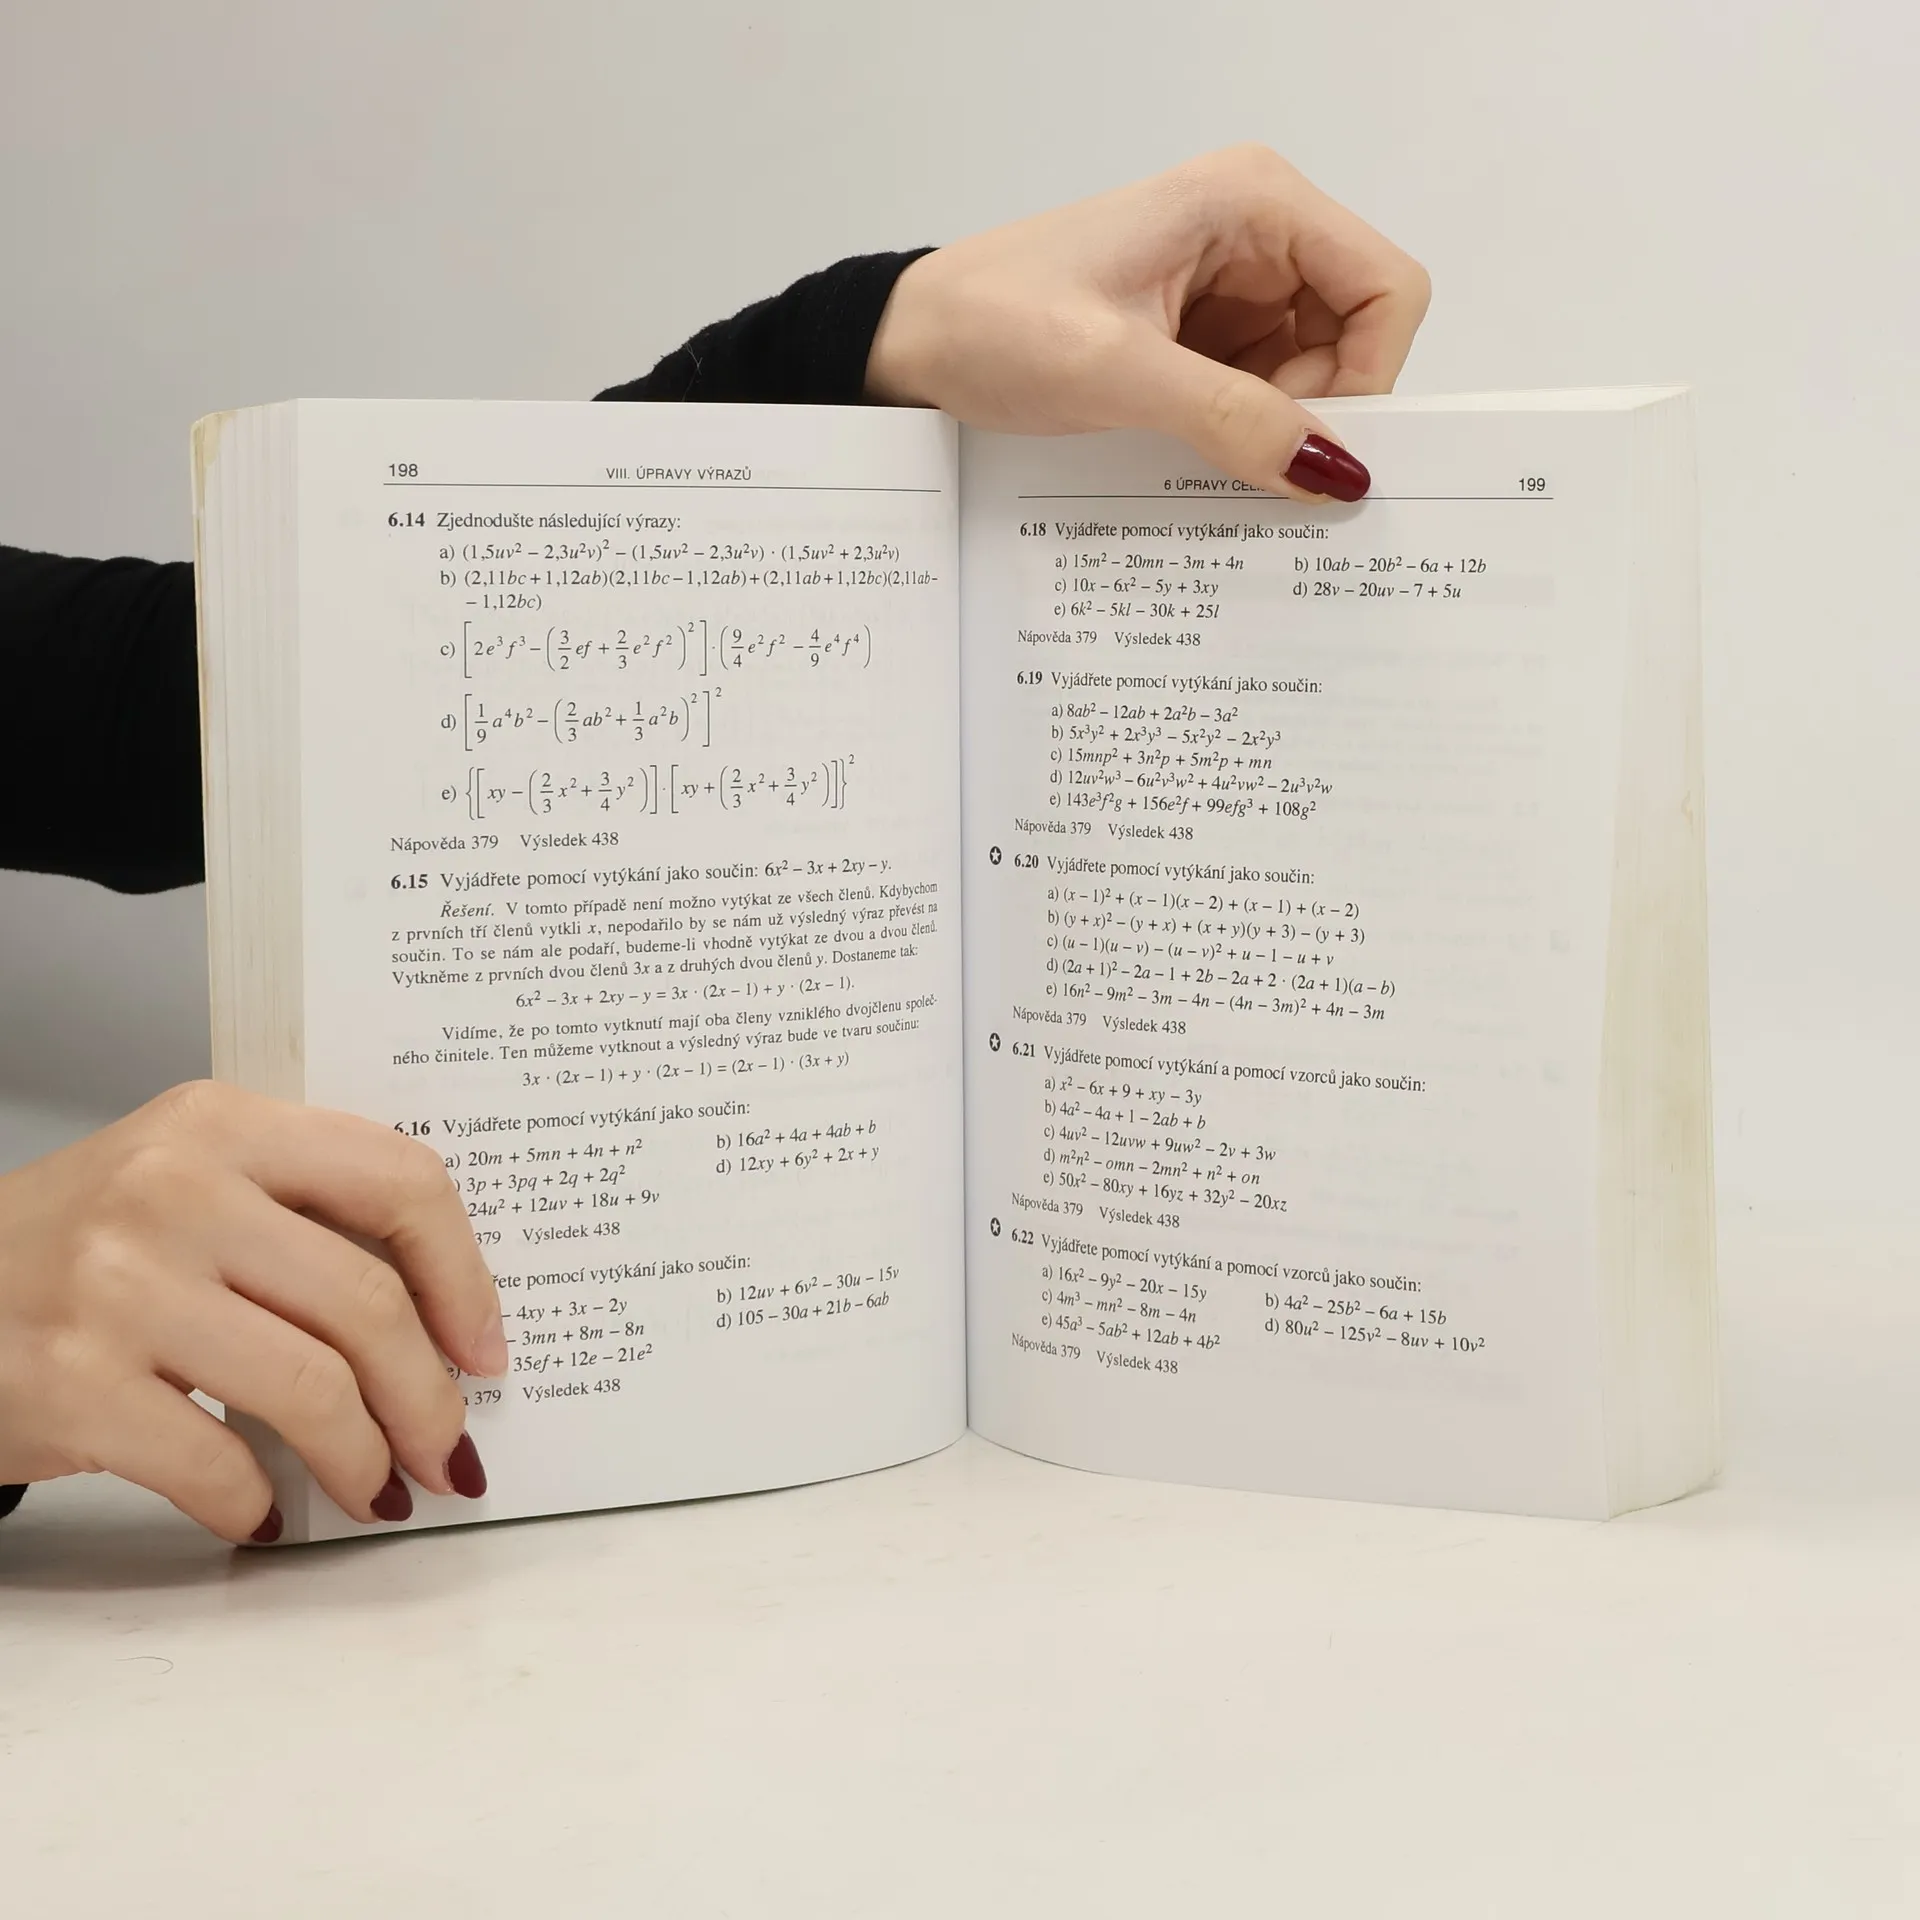 198
VIII. ÚPRAVY VÝRAZŮ
6.14 Zjednodušte následující výrazy:
a) (1,5uv² – 2,3u²v)² – (1,5uv² – 2,3u²v) · (1,5uv² + 2,3u²v)
b) (2,11bc + 1,12ab)(2,11bc – 1,12ab) + (2,11ab + 1,12bc)(2,11ab –
– 1,12bc)
c) [2e³f³ – (3/2 ef + 2/3 e²f²)²] · (9/4 e²f² – 4/9 e⁴f⁴)
d) [1/9 a⁴b² – (2/3 ab² + 1/3 a²b)²]²
e) {[xy – (2/3 x² + 3/4 y²)] · [xy + (2/3 x² + 3/4 y²)]}²
Nápověda 379 Výsledek 438
6.15 Vyjádřete pomocí vytýkání jako součin: 6x² – 3x + 2xy – y.
Řešení. V tomto případě není možno vytýkat ze všech členů. Kdybychom
z prvních tří členů vytkli x, nepodařilo by se nám už výsledný výraz převést na
součin. To se nám ale podaří, budeme-li vhodně vytýkat ze dvou a dvou členů.
Vytkněme z prvních dvou členů 3x a z druhých dvou členů y. Dostaneme tak:
6x² – 3x + 2xy – y = 3x · (2x – 1) + y · (2x – 1).
Vidíme, že po tomto vytknutí mají oba členy vzniklého dvojčlenu společ-
ného činitele. Ten můžeme vytknout a výsledný výraz bude ve tvaru součinu:
3x · (2x – 1) + y · (2x – 1) = (2x – 1) · (3x + y)
6.16 Vyjádřete pomocí vytýkání jako součin:
a) 20m + 5mn + 4n + n² b) 16a² + 4a + 4ab + b
) 3p + 3pq + 2q + 2q² d) 12xy + 6y² + 2x + y
24u² + 12uv + 18u + 9v
379 Výsledek 438
řete pomocí vytýkání jako součin:
– 4xy + 3x – 2y b) 12uv + 6v² – 30u – 15v
– 3mn + 8m – 8n d) 105 – 30a + 21b – 6ab
e) 35ef + 12e – 21e²
a 379 Výsledek 438
6 ÚPRAVY
199
6.18 Vyjádřete pomocí vytýkání jako součin:
a) 15m² – 20mn – 3m + 4n b) 10ab – 20b² – 6a + 12b
c) 10x – 6x² – 5y + 3xy d) 28v – 20uv – 7 + 5u
e) 6k² – 5kl – 30k + 25l
Nápověda 379 Výsledek 438
6.19 Vyjádřete pomocí vytýkání jako součin:
a) 8ab² – 12ab + 2a²b – 3a²
b) 5x³y² + 2x³y³ – 5x²y² – 2x²y³
c) 15mnp² + 3n²p + 5m²p + mn
d) 12uv²w³ – 6u²v³w² + 4u²vw² – 2u³v²w
e) 143e³f²g + 156e²f + 99efg³ + 108g²
Nápověda 379 Výsledek 438
6.20 Vyjádřete pomocí vytýkání jako součin:
a) (x – 1)² + (x – 1)(x – 2) + (x – 1) + (x – 2)
b) (y + x)² – (y + x) + (x + y)(y + 3) – (y + 3)
c) (u – 1)(u – v) – (u – v)² + u – 1 – u + v
d) (2a + 1)² – 2a – 1 + 2b – 2a + 2 · (2a + 1)(a – b)
e) 16n² – 9m² – 3m – 4n – (4n – 3m)² + 4n – 3m
Nápověda 379 Výsledek 438
6.21 Vyjádřete pomocí vytýkání a pomocí vzorců jako součin:
a) x² – 6x + 9 + xy – 3y
b) 4a² – 4a + 1 – 2ab + b
c) 4uv² – 12uvw + 9uw² – 2v + 3w
d) m²n² – omn – 2mn² + n² + on
e) 50x² – 80xy + 16yz + 32y² – 20xz
Nápověda 379 Výsledek 438
6.22 Vyjádřete pomocí vytýkání a pomocí vzorců jako součin:
a) 16x² – 9y² – 20x – 15y b) 4a² – 25b² – 6a + 15b
c) 4m³ – mn² – 8m – 4n d) 80u² – 125v² – 8uv + 10v²
e) 45a³ – 5ab² + 12ab + 4b²
Nápověda 379 Výsledek 438